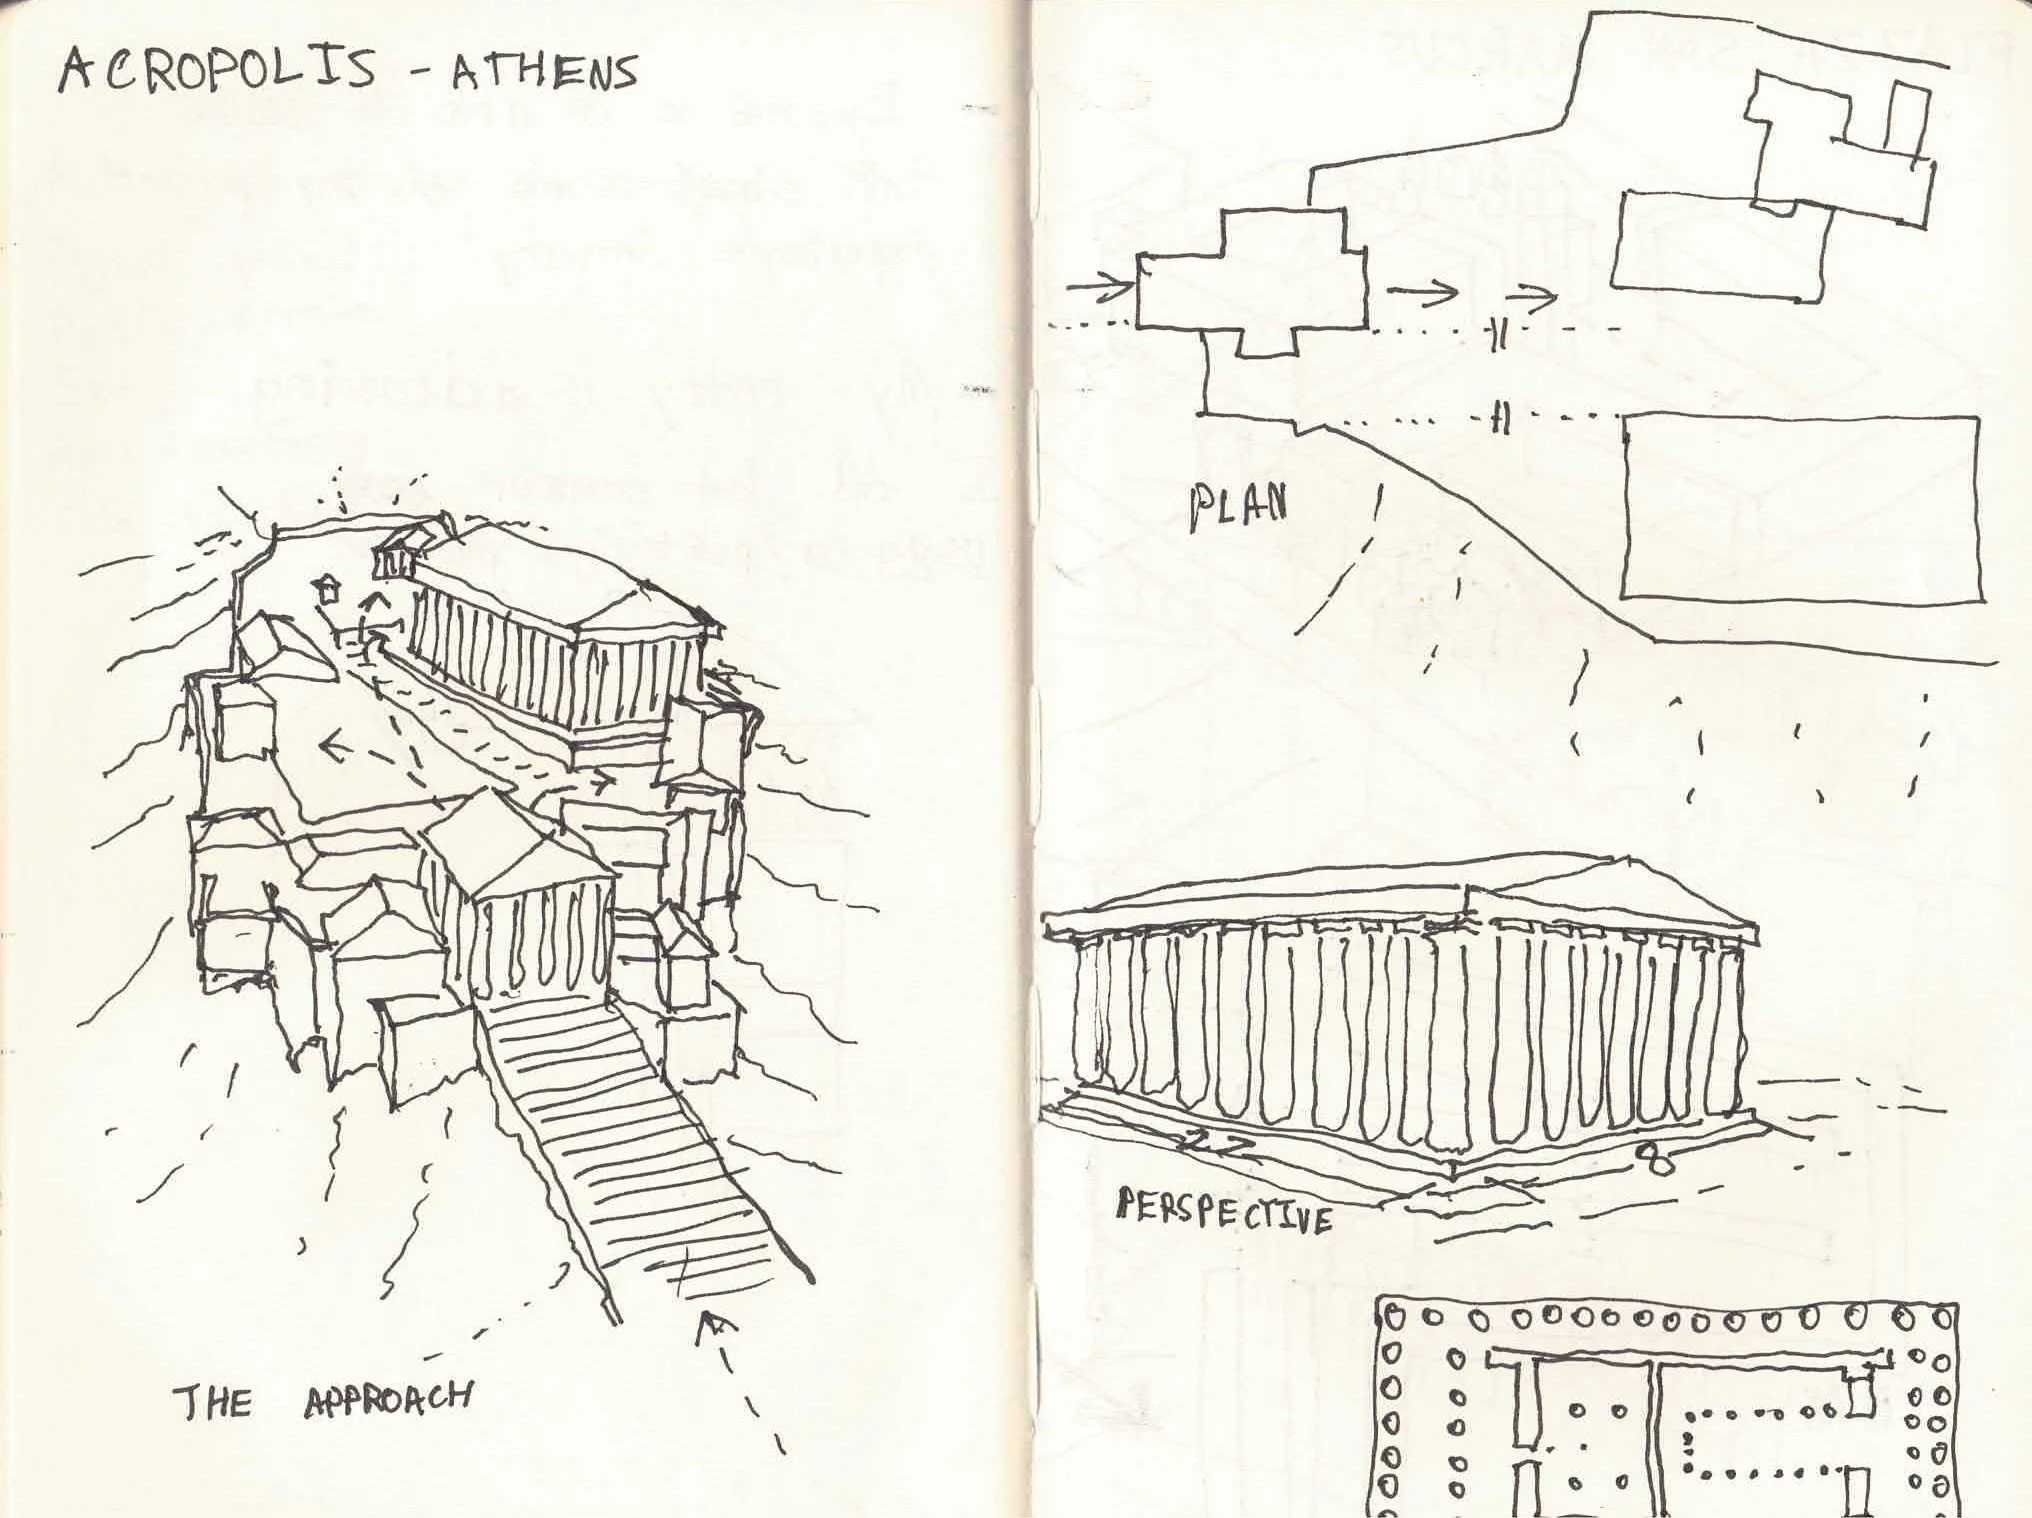 ACROPOLIS - ATHENS
THE APPROACH
PLAN
22
8
PERSPECTIVE